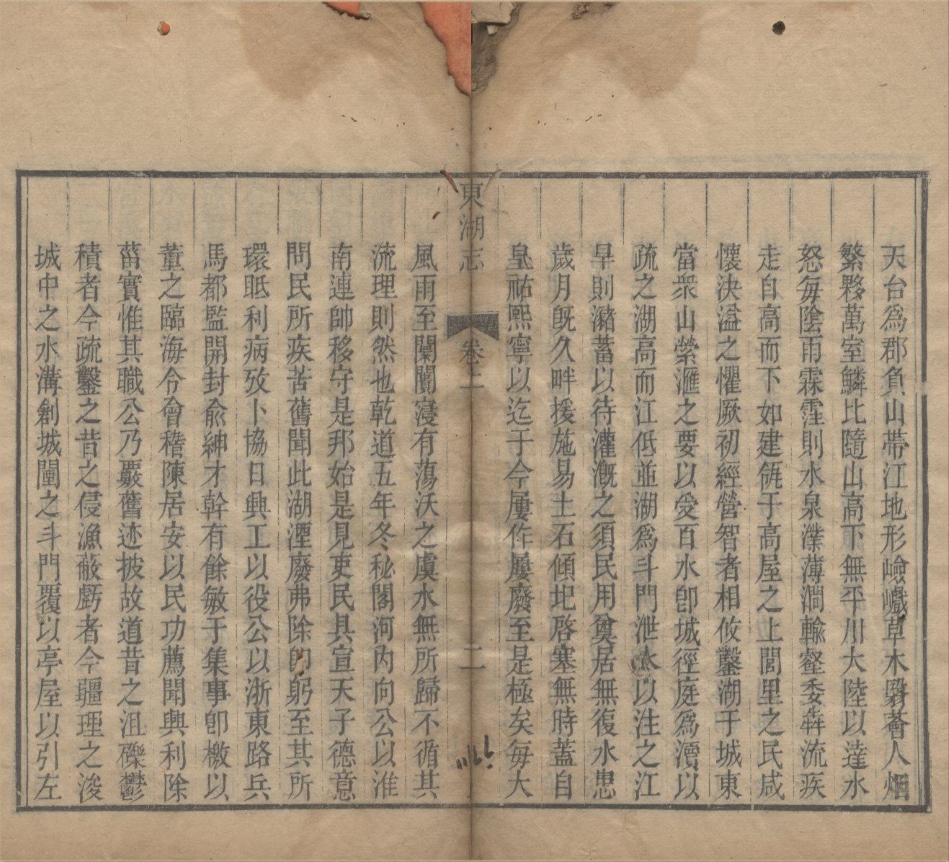 天台爲郡負山帶江地形嶮巇草木翳薈人烟
繁夥萬室鱗比隨山高下無平川大陸以達水
怒每陰雨霖霪則水泉濼薄澗輸壑委犇流疾
走自高而下如建瓴于高屋之上閭里之民咸
懷決溢之懼厥初經營智者相攸鑿湖于城東
當衆山縈滙之要以受百水卽城徑庭爲瀆以
疏之湖高而江低並湖爲斗門泄水以注之江
旱則瀦蓄以待灌漑之須民用奠居無復水患
歲月旣久畔援施易土石傾圯啓塞無時蓋自
皇祐熙寧以迄于今屢作屢廢至是極矣每大
東湖志
卷二
二
風雨至闤闠寖有蕩沃之虞水無所歸不循其
流理則然也乾道五年冬秘閣河內向公以淮
南連帥移守是邦始是見吏民具宣天子德意
問民所疾苦舊聞此湖湮廢弗除卽躬至其所
環眡利病攷卜協日興工以役公以浙東路兵
馬都監開封兪紳才幹有餘敏于集事卽檄以
董之臨海令會稽陳居安以民功薦聞興利除
菑實惟其職公乃覈舊迹披故道昔之沮礫鬱
積者今疏鑿之昔之侵漁蔽虧者今疆理之浚
城中之水溝創城闉之斗門覆以亭屋以引左